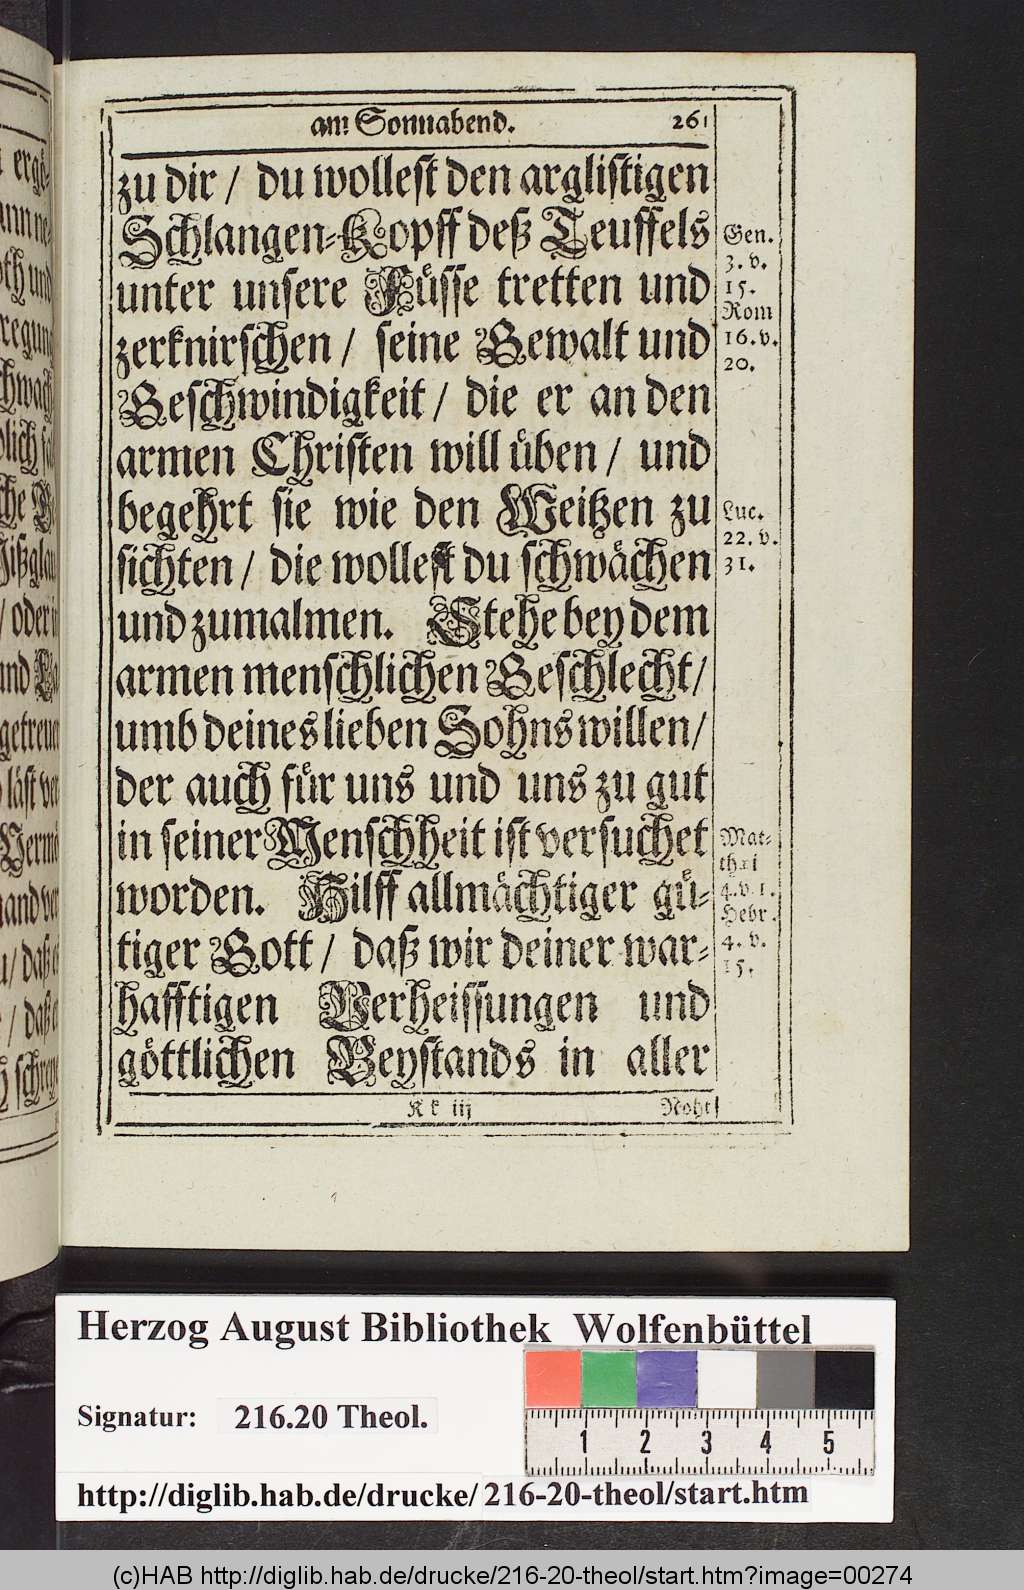 am Sonnabend. 261
zu dir / du wollest den arglistigen
Schlangen-Kopff deß Teuffels
unter unsere Füsse tretten und
zerknirschen / seine Gewalt und
Geschwindigkeit / die er an den
armen Christen will üben / und
begehrt sie wie den Weitzen zu
sichten / die wollest du schwächen
und zumalmen. Stehe bey dem
armen menschlichen Geschlecht /
umb deines lieben Sohns willen /
der auch für uns und uns zu gut
in seiner Menschheit ist versuchet
worden. Hilff allmächtiger gü-
tiger Gott / daß wir deiner war-
hafftigen Verheissungen und
göttlichen Beystands in aller
Kk iij Noht
Gen.
3. v.
15.
Rom
16. v.
20.
Luc.
22. v.
31.
Mat-
thæi
4. v. 1.
Hebr.
4. v.
15.
Herzog August Bibliothek Wolfenbüttel
Signatur: 216.20 Theol.
1 2 3 4 5
http://diglib.hab.de/drucke/216-20-theol/start.htm
(c)HAB http://diglib.hab.de/drucke/216-20-theol/start.htm?image=00274